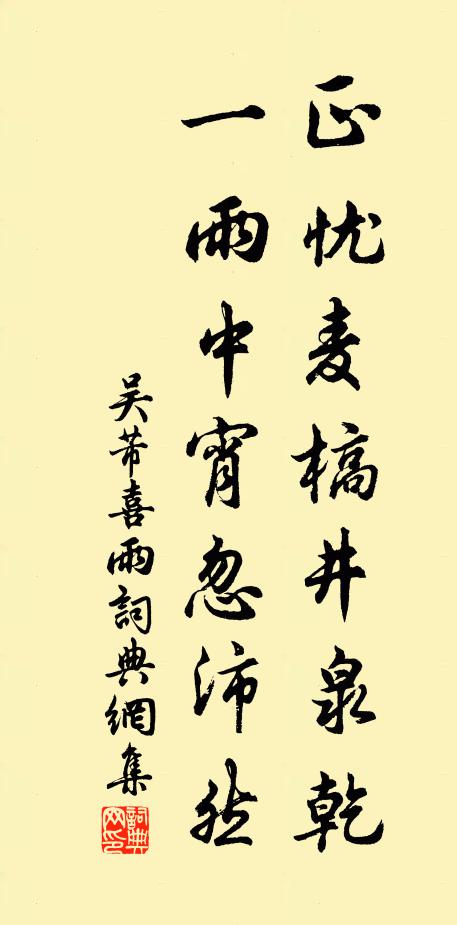 正忧麦槁井泉乾
一雨中宵忽沛然
吴芾喜雨詞典網集
詞典網印